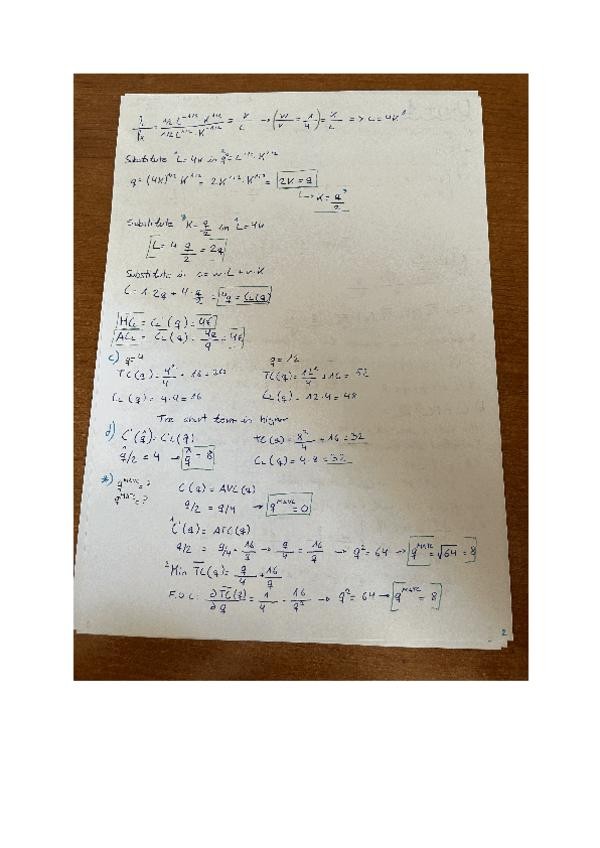 1/2 L^-1/2 K^1/2 / 1/2 L^1/2 K^-1/2 = K/L → (w/v = 1/4) = K/L => L=4K
Substitute L=4K in q=L^1/2 · K^1/2
q= (4K)^1/2 K^1/2 = 2K^1/2 · K^1/2 = 2K = q
↳ K = q/2
Substitute K= q/2 in L=4K
L= 4 q/2 = 2q
Substitute in c=w·L+v·K
C = 1·2q + 4·q/2 = 4q = CL(q)
MCL = CL'(q) = 4€
ACL = CL(q) = 4q/q = 4€
c) q=4 q=12
TC(q) = 4²/4 + 16 = 20 TC(q)= 12²/4 + 16 = 52
CL(q) = 4·4 = 16 CL(q) = 12·4 = 48
The short term is higher
d) C'(q̂) = C'L(q) TC(q) = 8²/4 + 16 = 32
q̂/2 = 4 → q̂ = 8 CL(q) = 4·8 = 32
*) q^MAVC = ? C'(q) = AVC(q)
q^MATC = ? q/2 = q/4 → q^MAVC = 0
¹C'(q) = ATC(q)
q/2 = q/4 + 16/q → q/4 = 16/q → q² = 64 → q^MATC = √64 = 8
²Min TC(q) = q/4 + 16/q
F.O.C: ∂TC(q)/∂q = 1/4 - 16/q² → q² = 64 → q^MATC = 8
2